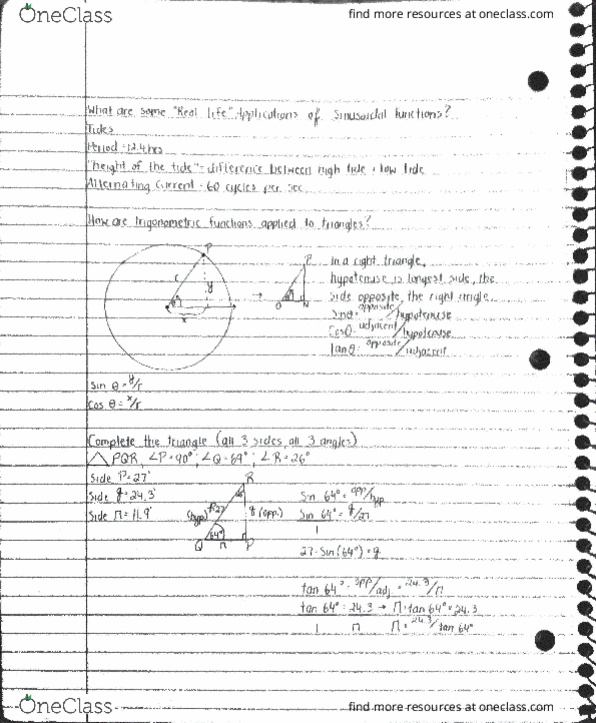 OneClass
find more resources at oneclass.com
What are some "Real life" Applications of Sinusoidal functions?
Tides
Period = 12.4 hrs
"height of the tide" = difference between high tide + low tide
Alternating Current - 60 cycles per sec
How are trigonometric functions applied to triangles?
P
r
y
θ
x
→
P
θ
O
N
in a right triangle,
hypotenuse is longest side, the
side opposite, the right angle.
Sinθ = opposite/hypotenuse
Cosθ = adjacent/hypotenuse
tanθ = opposite/adjacent
Sin θ = y/r
Cos θ = x/r
Complete the triangle (all 3 sides, all 3 angles)
△ PQR, ∠P=90°, ∠Q=64°, ∠R=26°
Side P=27'
Side q=24.3'
Side r=11.9'
R
(hyp) P=27
q (opp.)
64°
Q
r
P
Sin 64° = opp/hyp
Sin 64° = q/27
1
27·Sin(64°) = q
tan 64° = opp/adj = 24.3/r
tan 64° = 24.3 → r·tan 64° = 24.3
1 r r = 24.3/tan 64°
OneClass
find more resources at oneclass.com